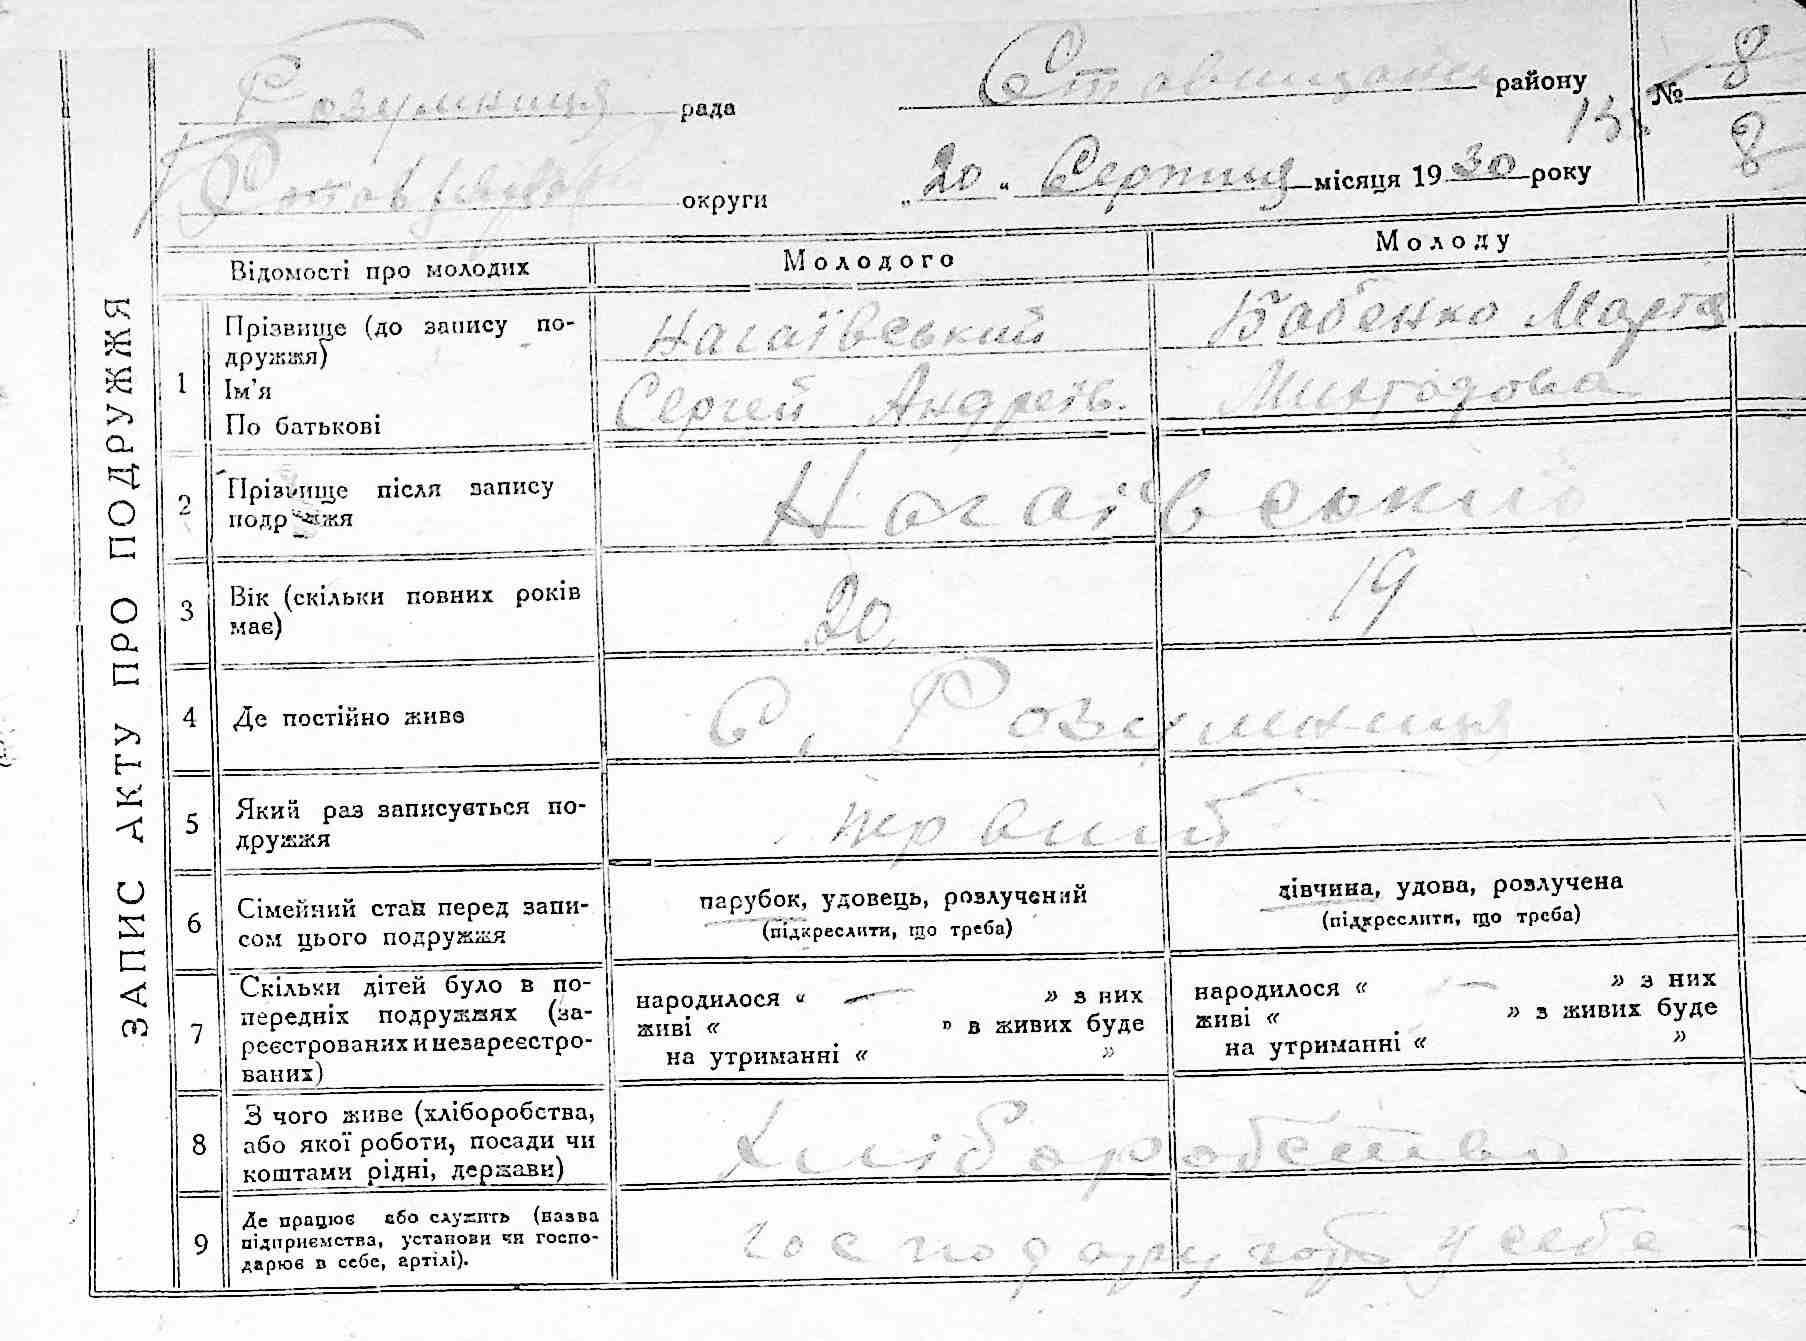 Розумниця рада
Ставищанськ району
№ 8
13. 8
округи
„20“ Серпня місяця 1930 року
ЗАПИС АКТУ ПРО ПОДРУЖЖЯ
Відомості про молодих Молодого Молоду
1 Прізвище (до запису по-
дружжя)
Ім’я
По батькові
Нагаївський
Сергей Андреїв.
Бабенко Марта
2 Прізвище після запису
подружжя
Нагаївський
3 Вік (скільки повних років
має)
20 19
4 Де постійно живе С. Розумниця
5 Який раз записується по-
дружжя
первий
6 Сімейний стан перед запи-
сом цього подружжя
парубок, удовець, розлучений
(підкреслити, що треба)
дівчина, удова, розлучена
(підкреслити, що треба)
7 Скільки дітей було в по-
передніх подружжях (за-
реєстрованих и незареєстро-
ваних)
народилося « — » з них
живі « » в живих буде
на утриманні « »
народилося « — » з них
живі « » з живих буде
на утриманні « »
8 З чого живе (хліборобства,
або якої роботи, посади чи
коштами рідні, держави)
Хліборобство
9 Де працює або служить (назва
підприємства, установи чи госпо-
дарює в себе, артілі).
господарують у себе